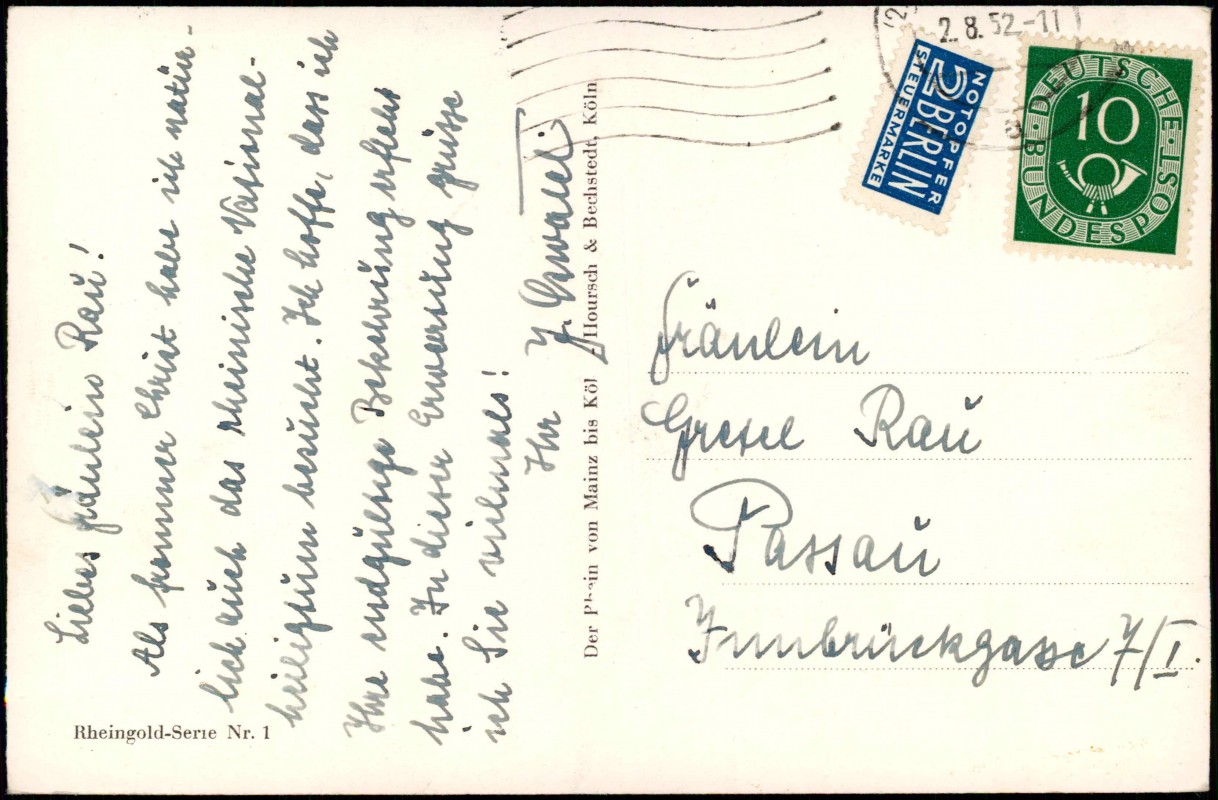 Liebes Fräulein Rau!
Als frommer Christ habe ich natür-
lich auch das rheinische National-
heiligtum besucht. Ich hoffe, dass ich
Ihre endgültige Bekehrung erfleht
habe. In dieser Erwartung grüsse
ich Sie vielmals!
Ihr
Rheingold-Serie Nr. 1
Der Rhein von Mainz bis Köl
Hoursch & Bechstedt, Köln
2.8.52-11
NOTOPFER
2 BERLIN
STEUERMARKE
DEUTSCHE BUNDESPOST
10
Fräulein
Gretel Rau
Passau
Innbrückgasse 7/I.